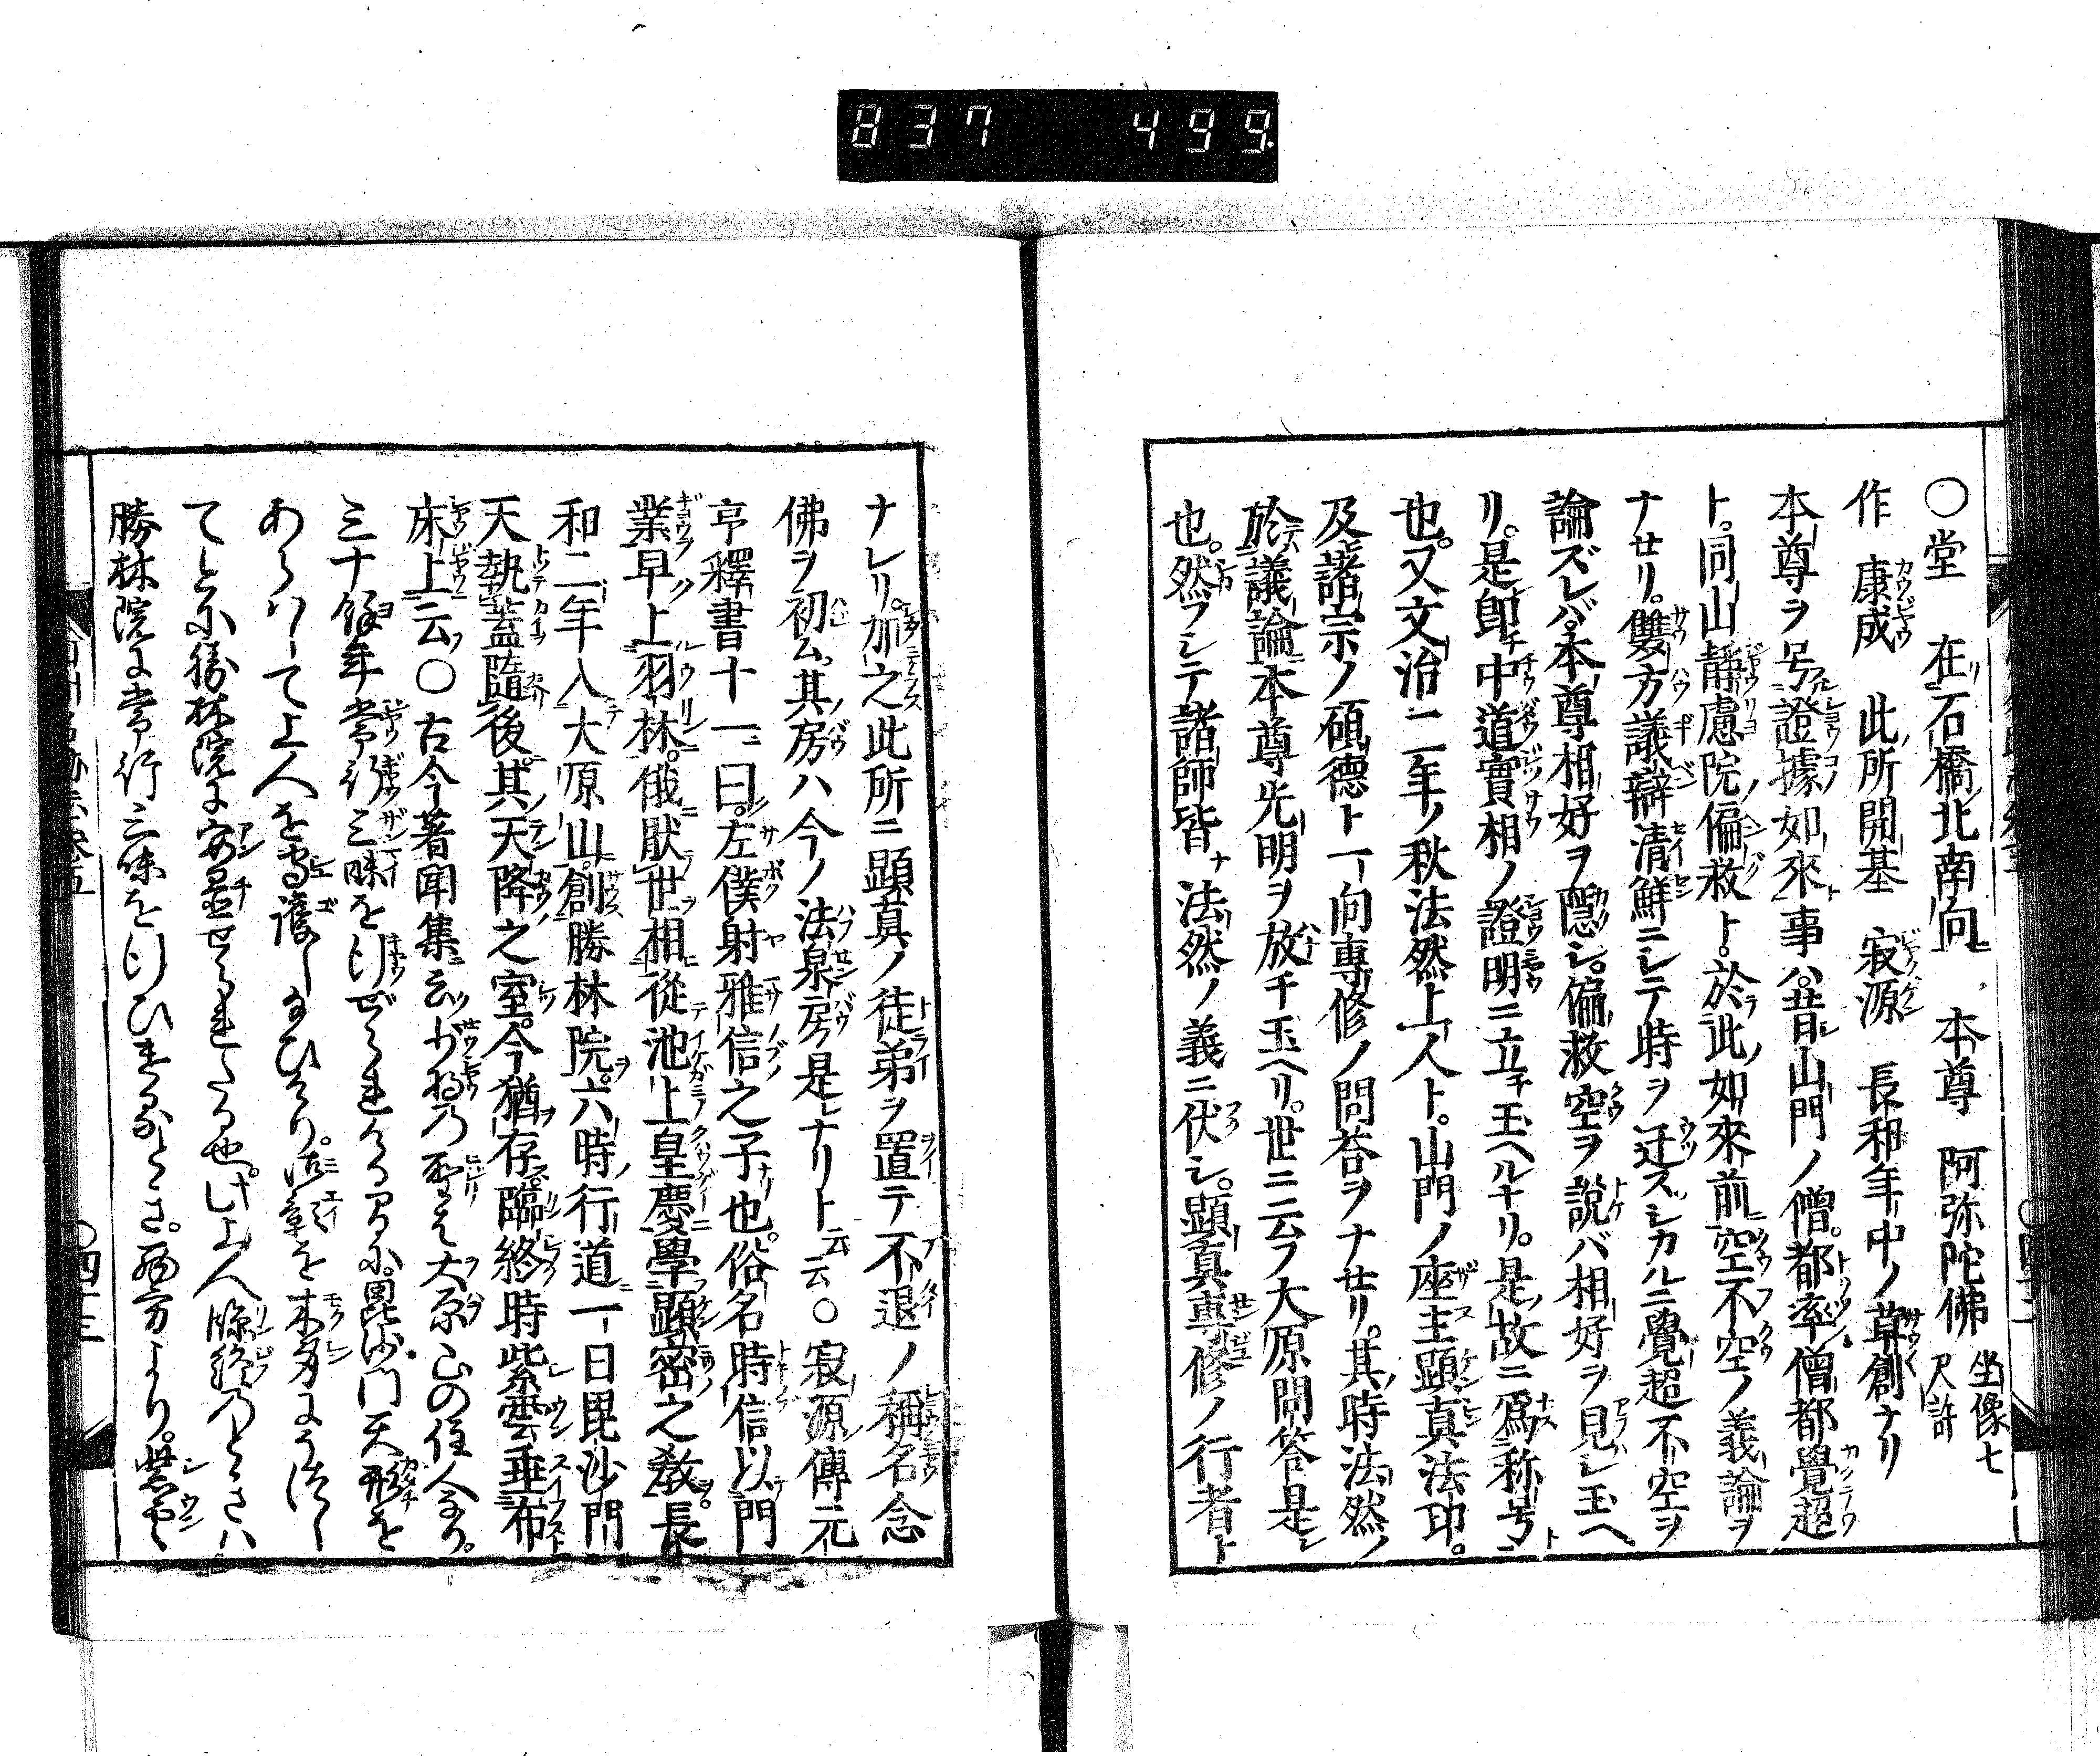 837 499
○堂 在石橋北南向 本尊 阿弥陀佛 坐像七尺許
作 康成 此所開基 寂源 長和年中ノ草創ナリ
本尊ヲ号證據如來事ハ昔山門ノ僧都率僧都覺超
ト。同山靜慮院偏救ト。於此如來前空不空ノ義論ヲ
ナセリ。雙方議辯清鮮ニシテ時ヲ迁ス。シカルニ覺超不空ヲ
論ズレバ。本尊相好ヲ隱シ。偏救空ヲ說バ相好ヲ見シ玉ヘ
リ。是即中道實相ノ證明ニ立チ玉ヘルナリ。是故ニ爲称号
也。又文治二年ノ秋法然上人ト。山門ノ座主顯真法印。
及諸宗ノ碩德ト一向專修ノ問荅ヲナセリ。其時法然ノ
於議論本尊光明ヲ放チ玉ヘリ。世ニ云フ大原問荅是
也。然フシテ諸師皆法然ノ義ニ伏シ。顯真專修ノ行者ト
ナレリ。加之此所ニ顯真ノ徒弟ヲ置テ不退ノ稱名念
佛ヲ初ム。其房ハ今ノ法泉房是ナリト云云○寂源傳元
亨釋書十一曰。左僕射雅信之子也。俗名時信以門
業早上羽林。俄猒世相從池上皇慶學顯密之敎。長
和二年入大原山。創勝林院。六時行道一日毘沙門
天執蓋隨後。其天降之室。今猶存。臨終時紫雲垂布
床上云○古今著聞集云少將乃聖も大原山の住人なり。
三十餘年常行三昧を行ぜられける間に毘沙門天形を
あらハして上人を守護し給ひけり。御影を木像にうつし
てと小勝林院に安置せられたる也。此上人臨終のときハ
勝林院に常行三昧を行ひけるとき。西方より。紫雲